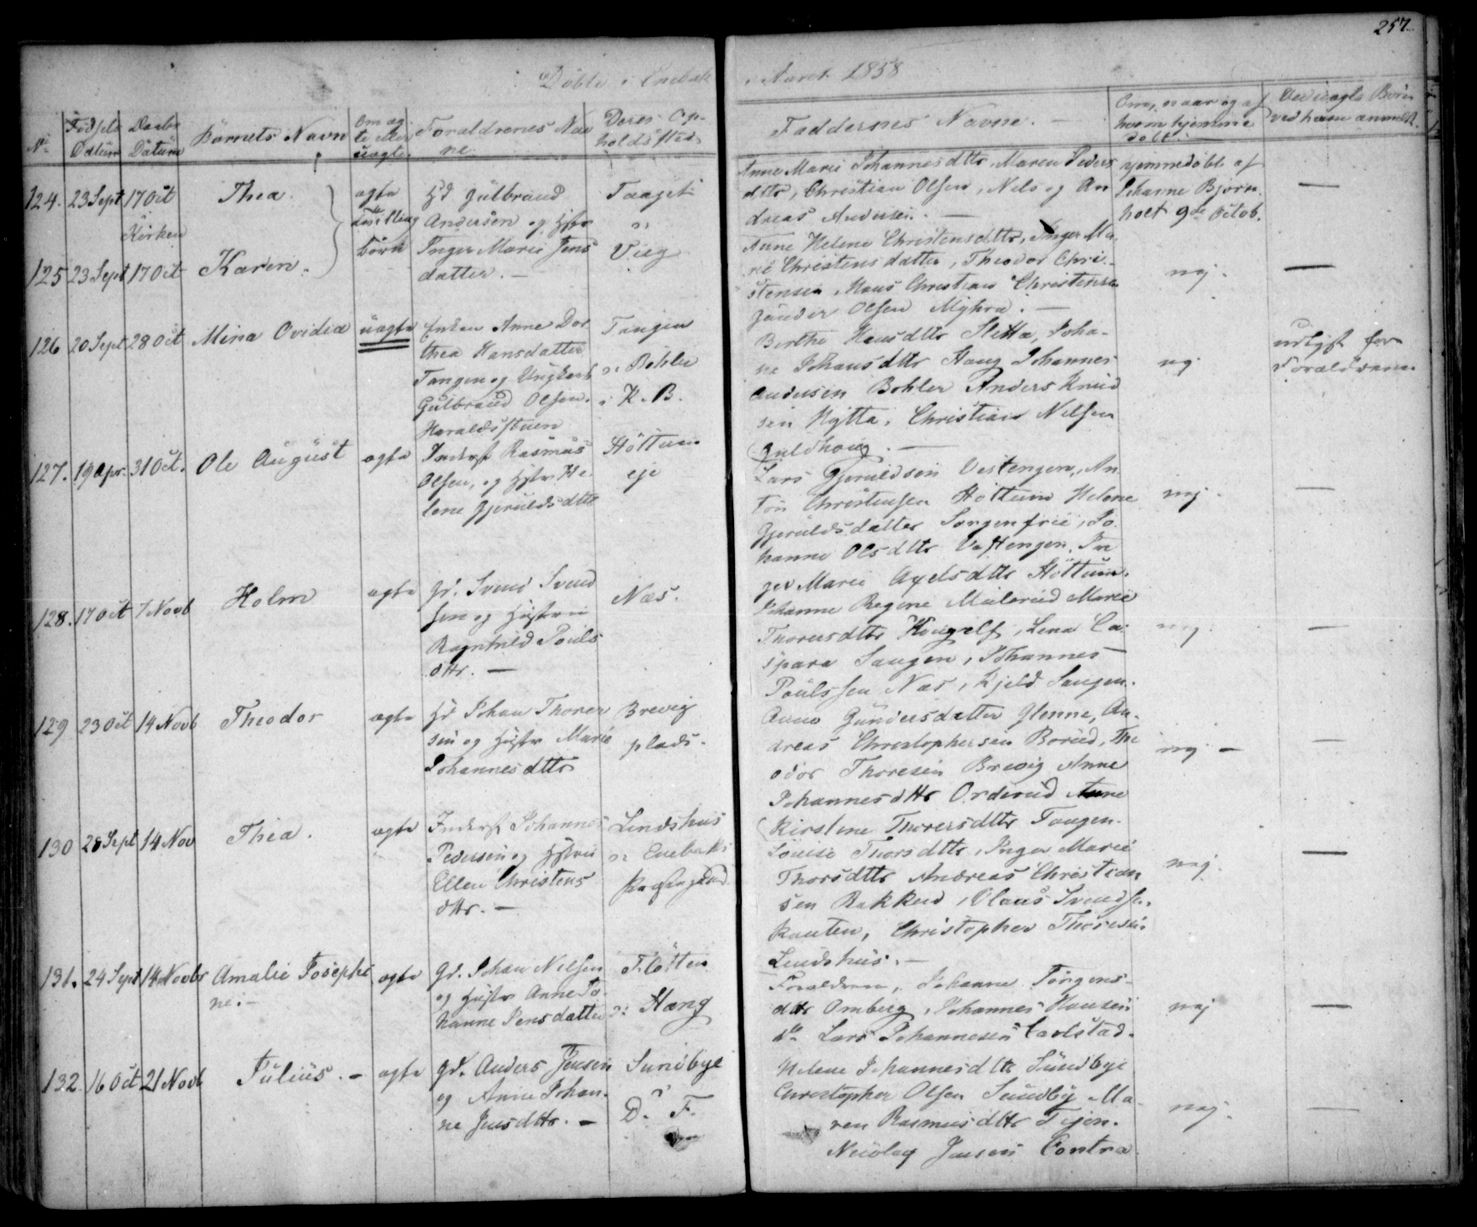 257.
Döbte i Enebak
i Aaret 1858
No
Födsels Datum
Daabs Datum
Barnets Navn
Om ægte eller uægte
Forældrenes Navne.
Deres Opholdssted.
Faddernes Navne. —
124. 23 Sept 17 Oct Kirken
Thea.
ægte Tvilling börn
Gd Gulbrand
Andersen og Hstr
Inger Marie Jens
datter. —
Taaget
Vieg
Anne Marie Johannesdttr, Maren Peders
dttr, Christian Olsen, Nels og An
dreas Andersen. —
hjemmedöbt af
Johanne Bjørn
holt 9de Octob.
—
125 23 Sept 17 Oct
Karen.
Anne Helene Christensdttr, Inger Ma
rie Christensdatter, Theodor Chri-
stensen Maus Christian Christensen
Gunder Olsen Myhra. —
nej.
—
126 20 Sept 28 Oct
Mina Ovidia
uægte
Enken Anne Dor
thea Hansdatter
Tangen og Ungkarl
Gulbrand Olsen.
Haraldsstuen
Tangen
o: Böhler
i K. B.
Berthe Hansdttr Sletta, Joha-
ne Johansdttr Haug Johannes
Andersen Bohler Anders Knud
sen Nytta, Christian Nelsen
Guldhoug. —
nej
udlagt for
Forældrene
127. 19 Apr. 31 Oct.
Ole August
ægte
Inderst Rasmus
Olsen, og Hstr He
lene Gjeruldsdttr
Höttum
eje
Lars Gjeruldsen Vestengen, An
ton Christensen Höttum Helene
Gjeruldsdatter Sorgenfrie, Jo
hanne Olsdttr Vestengen, In
ger Marie Axelsdttr Höttum.
nej.
—
128. 17 Oct 7 Novb
Holm
ægte
Gd. Svend Svend
sen og Hustru
Ragnhild Pouls
dttr. —
Næs.
Johanne Regine Mülerud Marie
Thorersdttr Kougelf, Lena Ca
spara Saugen, Johannes
Poulssen Næs, Kjeld Saugen.
nej.
—
129 23 Oct 14 Novb
Theodor
ægte
Gd Johan Thorer
sen og Hustr Marie
Johannesdttr
Brevig
plads.
Anne Gundersdatter Glenne, An-
dreas Christophersen Borud, The
odor Thoresen Brevig Anne
Johannesdttr Orderud Anne
Kirstine Thorersdttr Tangen.
nej. —
—
130 28 Sept 14 Nov
Thea.
ægte
Inderst Johannes
Pedersen og Hstru
Ellen Christens
dttr. —
Lindshus
o: Enebaks
Louise Thorsdttr, Inger Marie
Thorsdttr Andreas Christian
sen Rakkud, Claus Svends.
Kauten, Christopher Thoresen
Lindshus. —
nej.
—
131. 24 Sept 14 Novbr
Amalie Josephi
ne. —
ægte
Gd. Johan Nilsen
og Hustr Anne Jo
hanne Jensdatter
Flötten
o: Haug
Forældrene, Johanne Jörgens-
dttr Omberg, Johannes Hansen
do Lars Johannesen Carlstad.
nej
—
132 16 Oct 21 Novb
Julius. —
ægte
Gd. Anders Jensen
og Anne Johan-
ne Jensdttr. —
Sundbye
D. F.
Helene Johannesdttr Sundbye
Christopher Olsen Sundby Ma-
ren Rasmusdttr Tijen.
Nicolay Jensen Contra
nej.
—